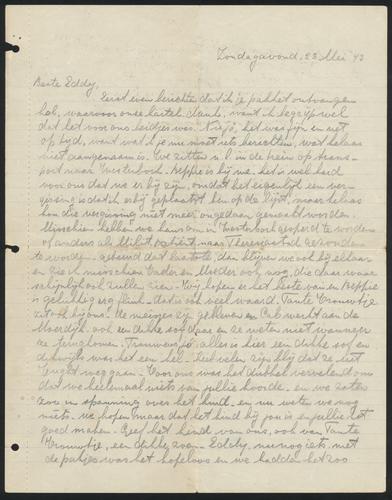 Zondagavond, 23 Mei 43
Beste Eddy,
Eerst even berichten dat ik je pakket ontvangen
heb, waarvoor onze hartel. dank, want ik begrijp wel
dat het voor ons bedoeld was. Het was fijn en net
op tijd, want wat ik je nu moet iets berichten, wat helaas
niet aangenaam is. We zitten n.l. in de trein op trans-
port naar Westerbork. Beppie is bij me. het is wel heid
voor ons dat we er bij zijn, omdat het eigenlijk een ver-
gissing is dat ik er bij geplaatst ben op de lijst, maar helaas
kon die vergissing niet meer ongedaan gemaakt worden.
Misschien hebben we kans om in Westerbork geopereerd te worden
of anders als naar Theresienstad gezonden
te worden. gebeurd dat laatste dan blijven we ook bij elkaar
en zie ik misschien Vader en Moeder ook nog, die daar waar-
schijnlijk ook zullen zijn. Wij hopen er het beste van en Beppie
is gelukkig erg flink, dat is ook veel waard. Tante Vrouwtje
zit ook bij ons. De meisjes zijn gebleven en Cal werkt aan de
Moerdijk. ook een dikke soof daar en ze weten niet wanneer
ze terugkomen. Trouwens, ja alles is hier een dikke soof en
dikwijls was het een hel. Heel velen zijn blij dat ze uit
Vught weg gaan. Voor ons was het dubbel vervelend om
dat we heelemaal niets van jullie hoorden. en we zaten
zoo in spanning over het kind. en nu weten we nog
niets. we hopen maar dat het kind bij jou is en jullie het
goed maken. Geef het kind van ons, ook van Tante
Vrouwtje, een dikke zoen. Eddy, nu nog iets. met
de pakjes was het hopeloos en we hadden het zoo